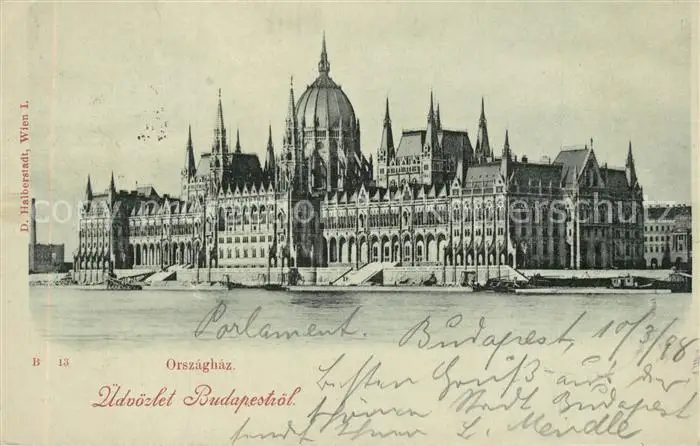 D. Halberstadt, Wien I.
Parlament. Budapest, 10/3/98
B 13
Országház.
Üdvözlet Budapestről.
Besten Gruß aus der
schönen Stadt Budapest
sendet Ihnen L. Meindle